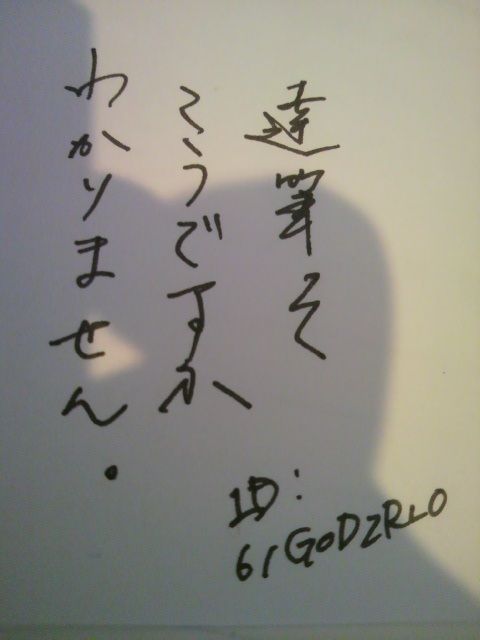 達筆そ
こうですか
わかりません.
ID:
61GODZRLO